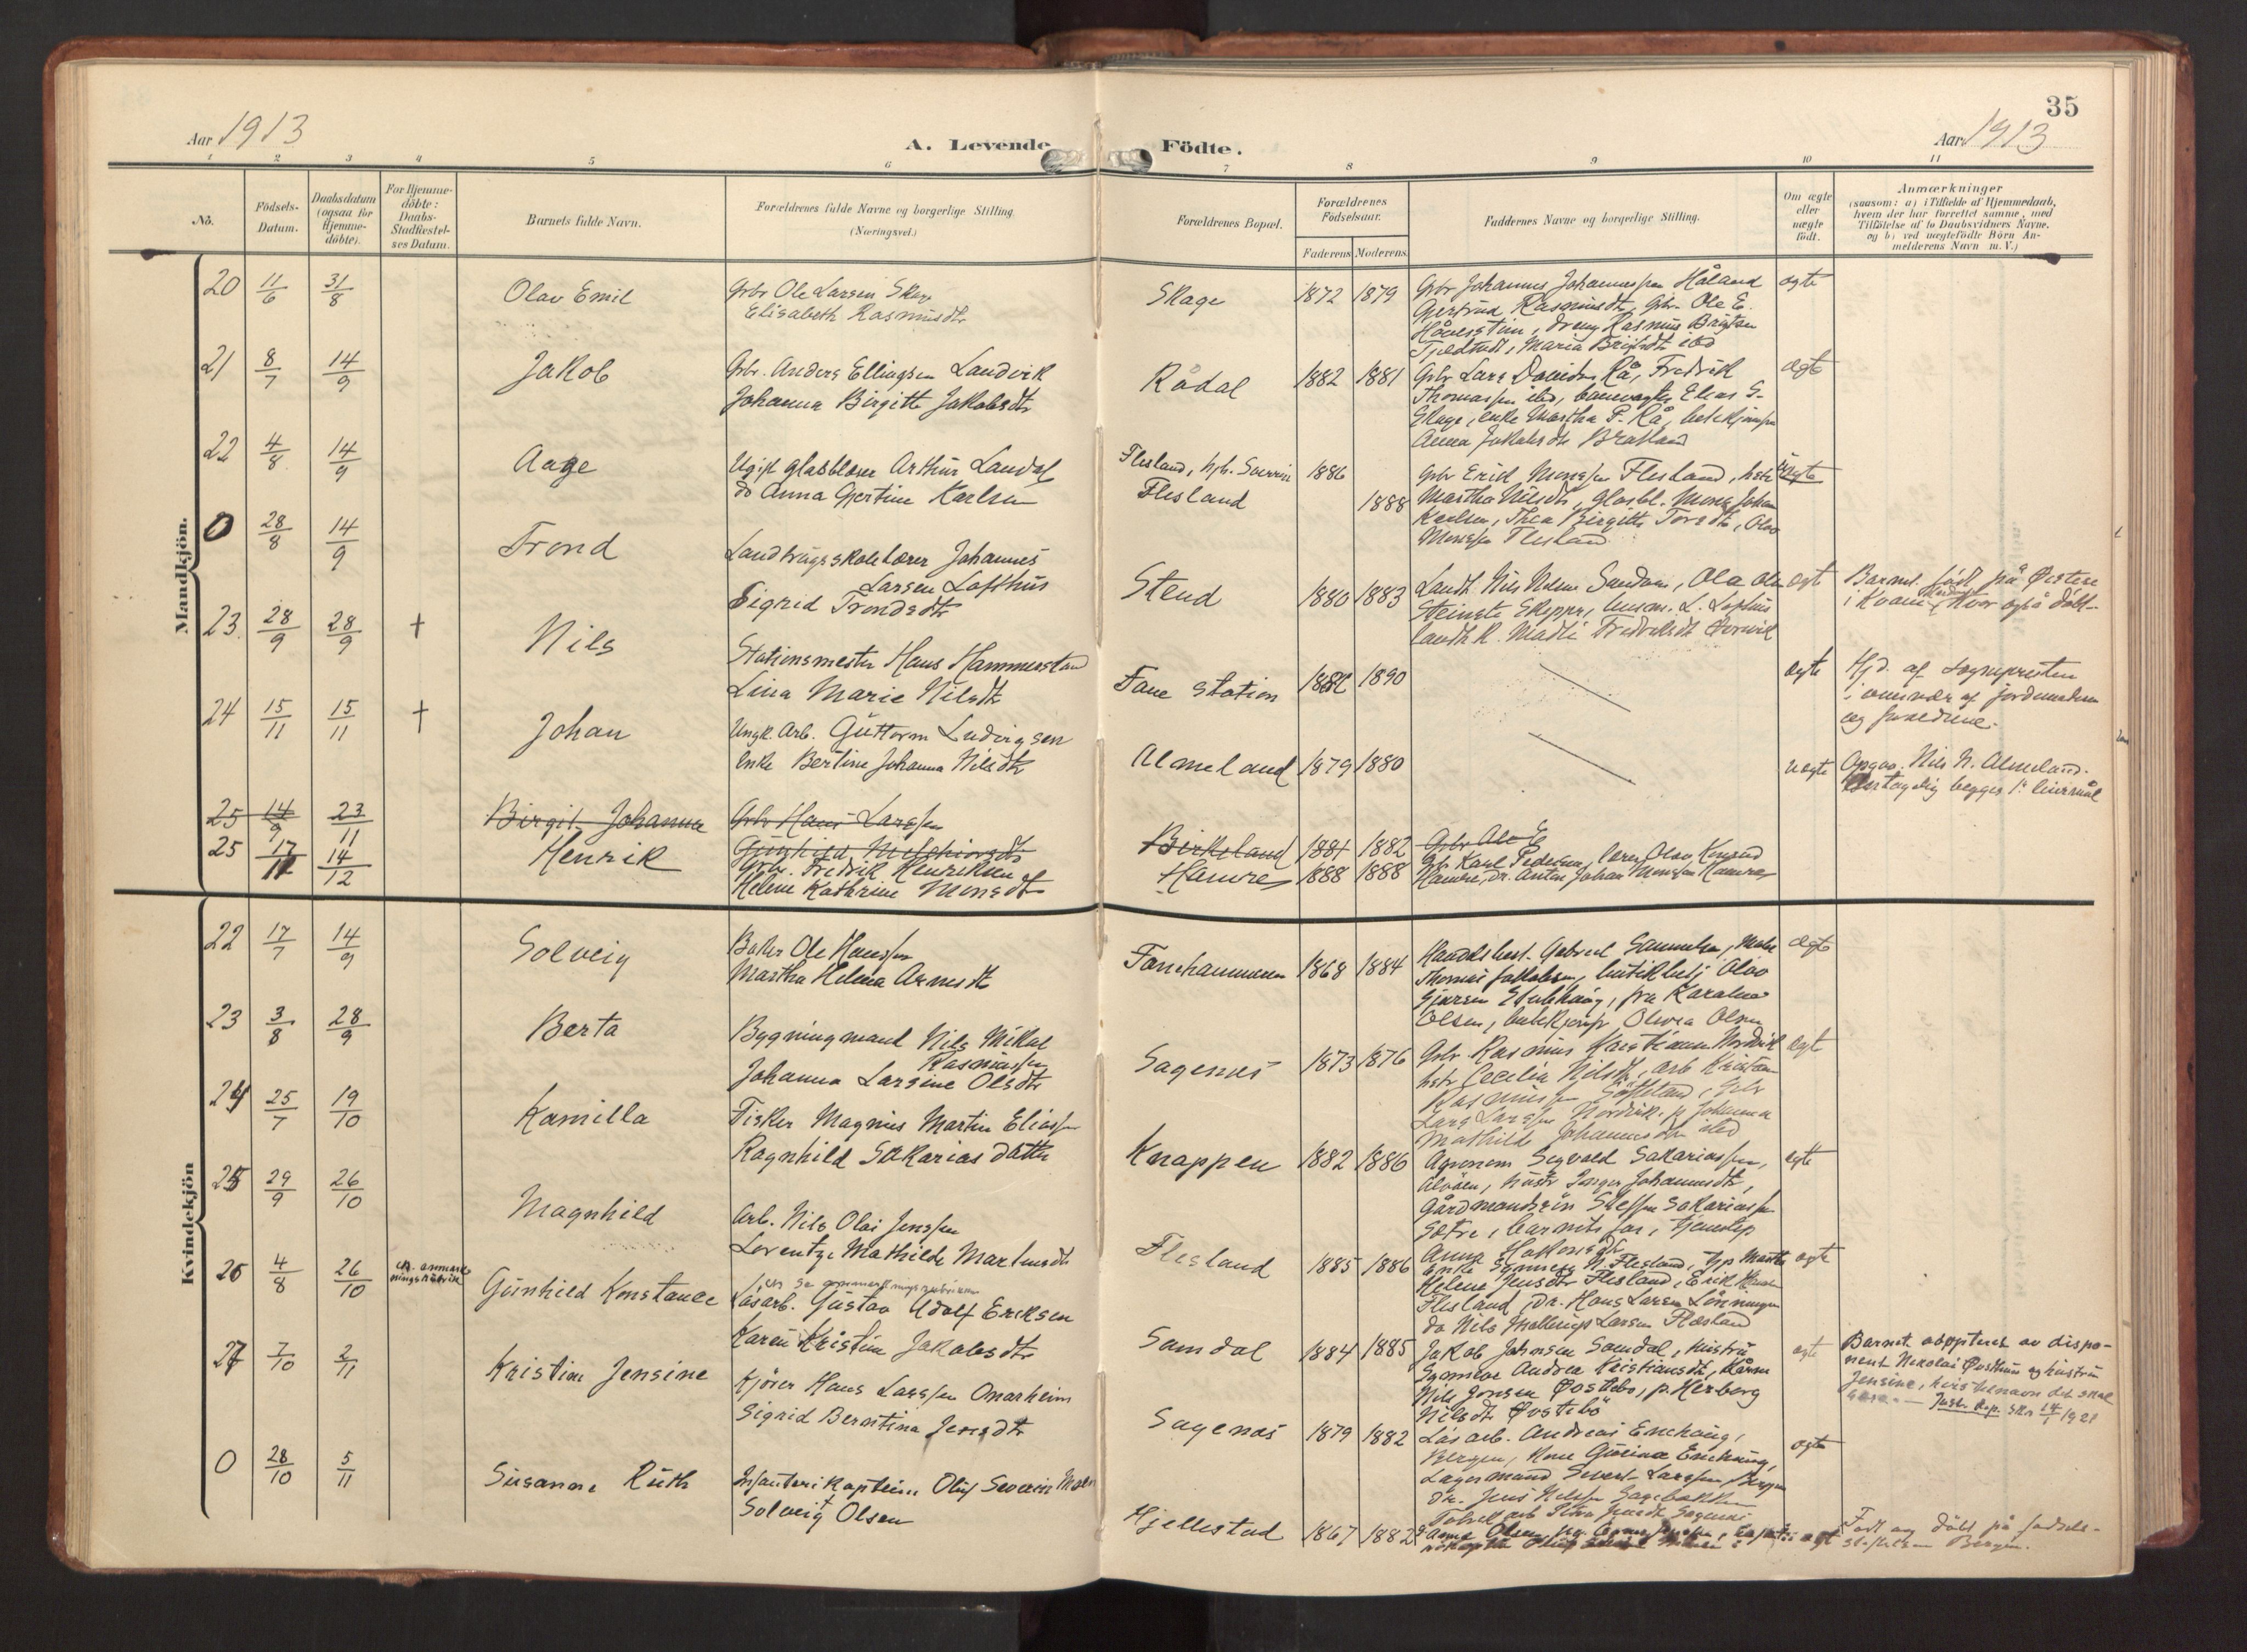 35
Aar 1913
A. Levende Födte.
Aar 1913
1 2 3 4 5 6 7 8 9 10 11
No.
Födsels-
Datum.
Daabsdatum
(ogsaa for
Hjemme-
döbte).
For Hjemme-
döbte:
Daabs-
Stadfæstel-
ses Datum.
Barnets fulde Navn.
Forældrenes fulde Navne og borgerlige Stilling.
(Næringsvei.)
Forældrenes Bopæl.
Forældrenes
Födselsaar.
Faderens Moderens
Faddernes Navne og borgerlige Stilling.
Om ægte
eller
uægte
födt.
Anmærkninger
(saasom: a) i Tilfælde af Hjemmedaab,
hvem der har forrettet samme, med
Tilföielse af to Daabsvidners Navne,
og b) ved uægtefödte Börn An-
melderens Navn m. V.)
Mandkjön.
20 11/6 31/8 Olav Emil Gbr Ole Larsen Skage
Elisabeth Rasmusdtr
Skage 1872 1879 Gbr Johannes Johannessen Håland
Gertrud Rasmusdtr, Gbr Ole E.
dreng Rasmus
Maria ibd
ægte
21 8/7 14/9 Jakob Gbr. Anders Ellingsen Landvik
Johanna Birgitte Jakobsdtr
Rådal 1882 1881 Gbr Lars Davidsen Rå, Fredrik
Thomassen ibd, banevogter Elias S.
Skage, enke Martha P. Rå,
Anna Jakobsdtr
ægte
22 4/8 14/9 Aage Ugift glasblæser Arthur Landal
do Anna Gjertine Karlsen
Flesland, h/h. Sverre
Flesland
1886 1888 Gbr Erik Monssen Flesland, hstr
Martha Nilsdtr, glasbl. Mons Johan
Karlsen, Thea Birgitte Olav
Monssen Flesland
uægte
0 28/8 14/9 Trond Landbrugsskolelærer Johannes
Larsen Lofthus
Sigrid Trondsdtr
Stend 1880 1883 Landh. Nils Ola Olsen
Steinstø L. Lofthus
ægt
Barnet født på Østese
i Kvam Hardanger, hvor også døbt.
23 28/9 28/9 + Nils Stationsmester Hans Hammerstad
Lina Marie Nilsdtr
Fane Station 1890
ægte
Hj.d. af sognepresten
i overvær af jordemoderen
og forældrene.
24 15/11 15/11 + Johan Ungk. Arb. Guttorm Ludvigsen
Enke Bertine Johanna Nilsdtr
Almeland 1879 1880
uægte
Opgav. Nils N. Almeland.
begges 1. leiermål
25 14/9 23/11 Birgit Johanna Gbr Hans Larssen
Gunhild Melchiorsdtr
Birkeland 1881 1882 Gbr Ole E
25 17/11 14/12 Henrik Gbr. Fredrik Henriksen
Helene Kathrine Monsdtr
Hamre 1888 1888 Gbr Karl Pedersen, lærer Olav Konrad
Hamre, dr. Anton Johan Monssen Hamre
Kvindekjön
22 17/7 14/9 Solveig Baker Ole Hanssen
Martha Helena Arnesdtr
Fanehammeren 1868 1884 Handelsbest. Gabriel Samuelsen, Maler
Thomas Jakobsen, butikbetj Olav
fru Karoline
Olsen, Olivia Olsen
ægte
23 3/8 28/9 Berta Bygningmand Nils Mikal
Rasmussen
Johanna Larsine Olsdtr
Sagenes 1873 1876 Gbr. Rasmus Kristiansen Nordvik
hstr Cecilia Nilsdtr, arb Kristian
Rasmussen gbr
Lars Larssen Nordvik, p Johanna
Mathilde Johannesdtr ibd
ægt
24 25/7 19/10 Kamilla Fisker Magnus Martin Eliassen
Ragnhild Sakarias datter
Knappen 1882 1886 Agronom Segvald Sakariassen,
Alvøen, hustr Inger Johannesdtr,
Gårdmandssøn Steffen Sakariassen
Sætre, barnets far, tjenestep
Anna Hakonsdtr
ægte
25 29/9 26/10 Magnhild Arb. Nils Olai Jenssen
Lorentze Mathilde Martinsdtr
Flesland 1885 1886 Enke Synneva N. Flesland, tjp Martha
Helene Jensdtr Flesland, Erik
Flesland, dr. Hans Larsen Lønningen
do Nils Larsen Flesland
ægte
26 4/8 26/10 se anmærk
ningsrubrik
Gunhild Konstance se anmerkningsrubriken
Løsarb. Gustav Adolf Eriksen
Karen Kristine Jakobsdtr
Samdal 1884 1885 Jakob Johnsen Samdal, hustru
Synneve Andrea Kristiansdtr,
Nils Jonsen Østebø, p. Herborg
Nilsdtr Østebø
ægte
Barnet adopteret av dispo-
nent Nikolai Østhus og hustru
Jensine, hvis etternavn det skal
bære. — Just. Dep. skr 14/1 1921
27 7/10 2/11 Kristine Jensine Kjører Hans Larssen Onarheim
Sigrid Berntina Jensdtr
Sagenæs 1879 1882 Løsarb. Andreas Enehaug,
Bergen, Kone Gurine Enehaug,
Lagermand Sivert Larssen, Bergen
Dr. Jens Nilssen Sagebakken
ægte
0 28/10 5/11 Susanne Ruth Infanterikaptein Oluf Severin
Solveig Olsen
Hjellestad 1867 1882 Anna Olsen,
ægt
Født og døbt på fødsels-
stiftelsen Bergen.